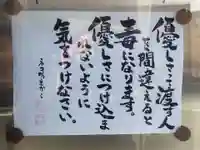 優しさも渡す人
を間違えると
毒になります。
優しさにつけ込ま
れないように
気をつけなさい。